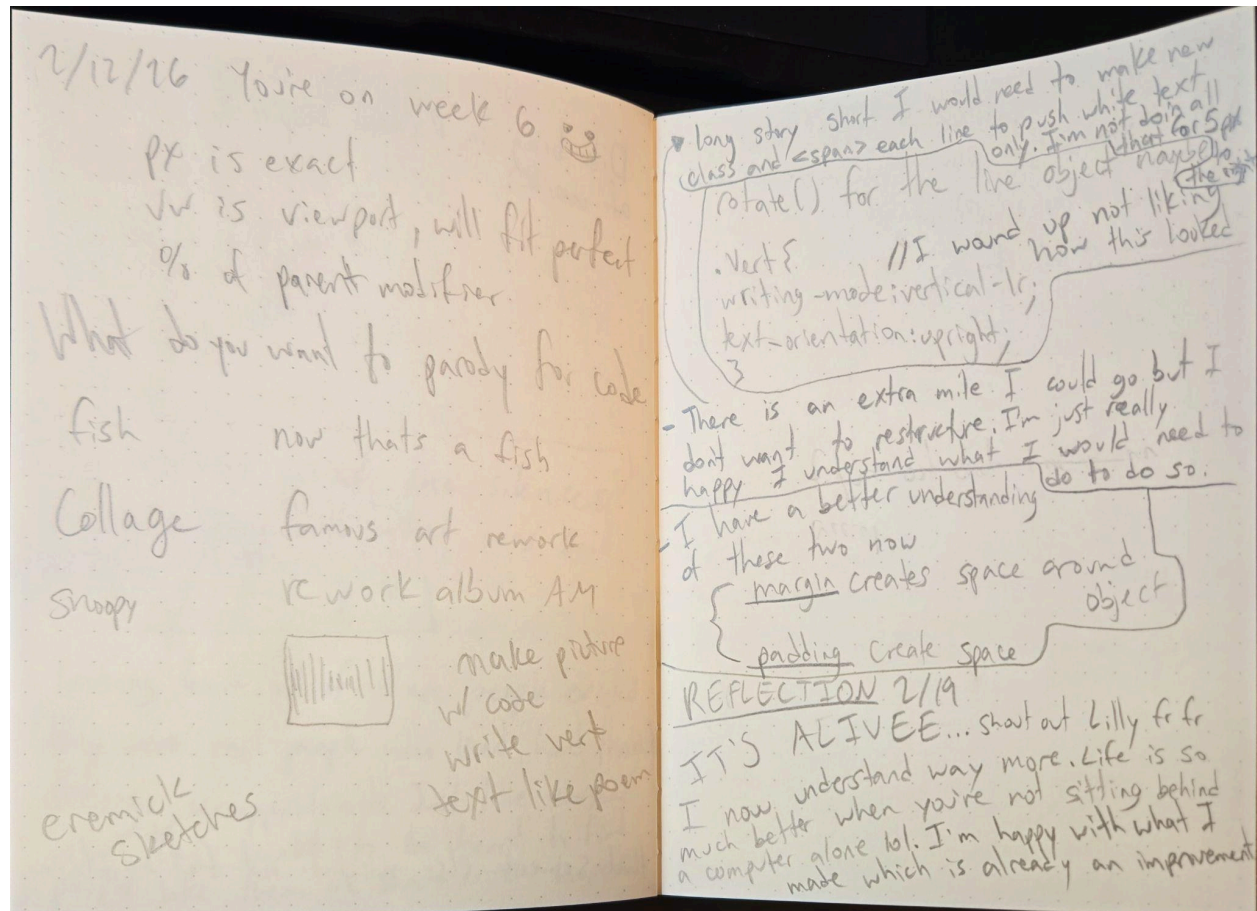 2/12/26 You're on week 6
px is exact
vw is viewport, will fit perfect
% of parent modifier
What do you want to parody for code
fish now thats a fish
Collage famous art rework
Snoopy rework album AM
make picture
w/ code
write vert
text like poem
eremick
sketches
long story short I would need to make new
class and <span> each line to push white text
only. I'm not doing all
that for 5px
to
the right
rotate() for the line object maybe
.vert{ //I wound up not liking
how this looked
writing-mode:vertical-lr;
text-orientation:upright;
}
- There is an extra mile I could go but I
don't want to restructure. I'm just really
happy I understand what I would need to
do to do so.
- I have a better understanding
of these two now
margin creates space around
object
padding create space
REFLECTION 2/19
IT'S ALIVEE... shout out Lilly fr fr
I now understand way more. Life is so
much better when you're not sitting behind
a computer alone lol. I'm happy with what I
made which is already an improvement